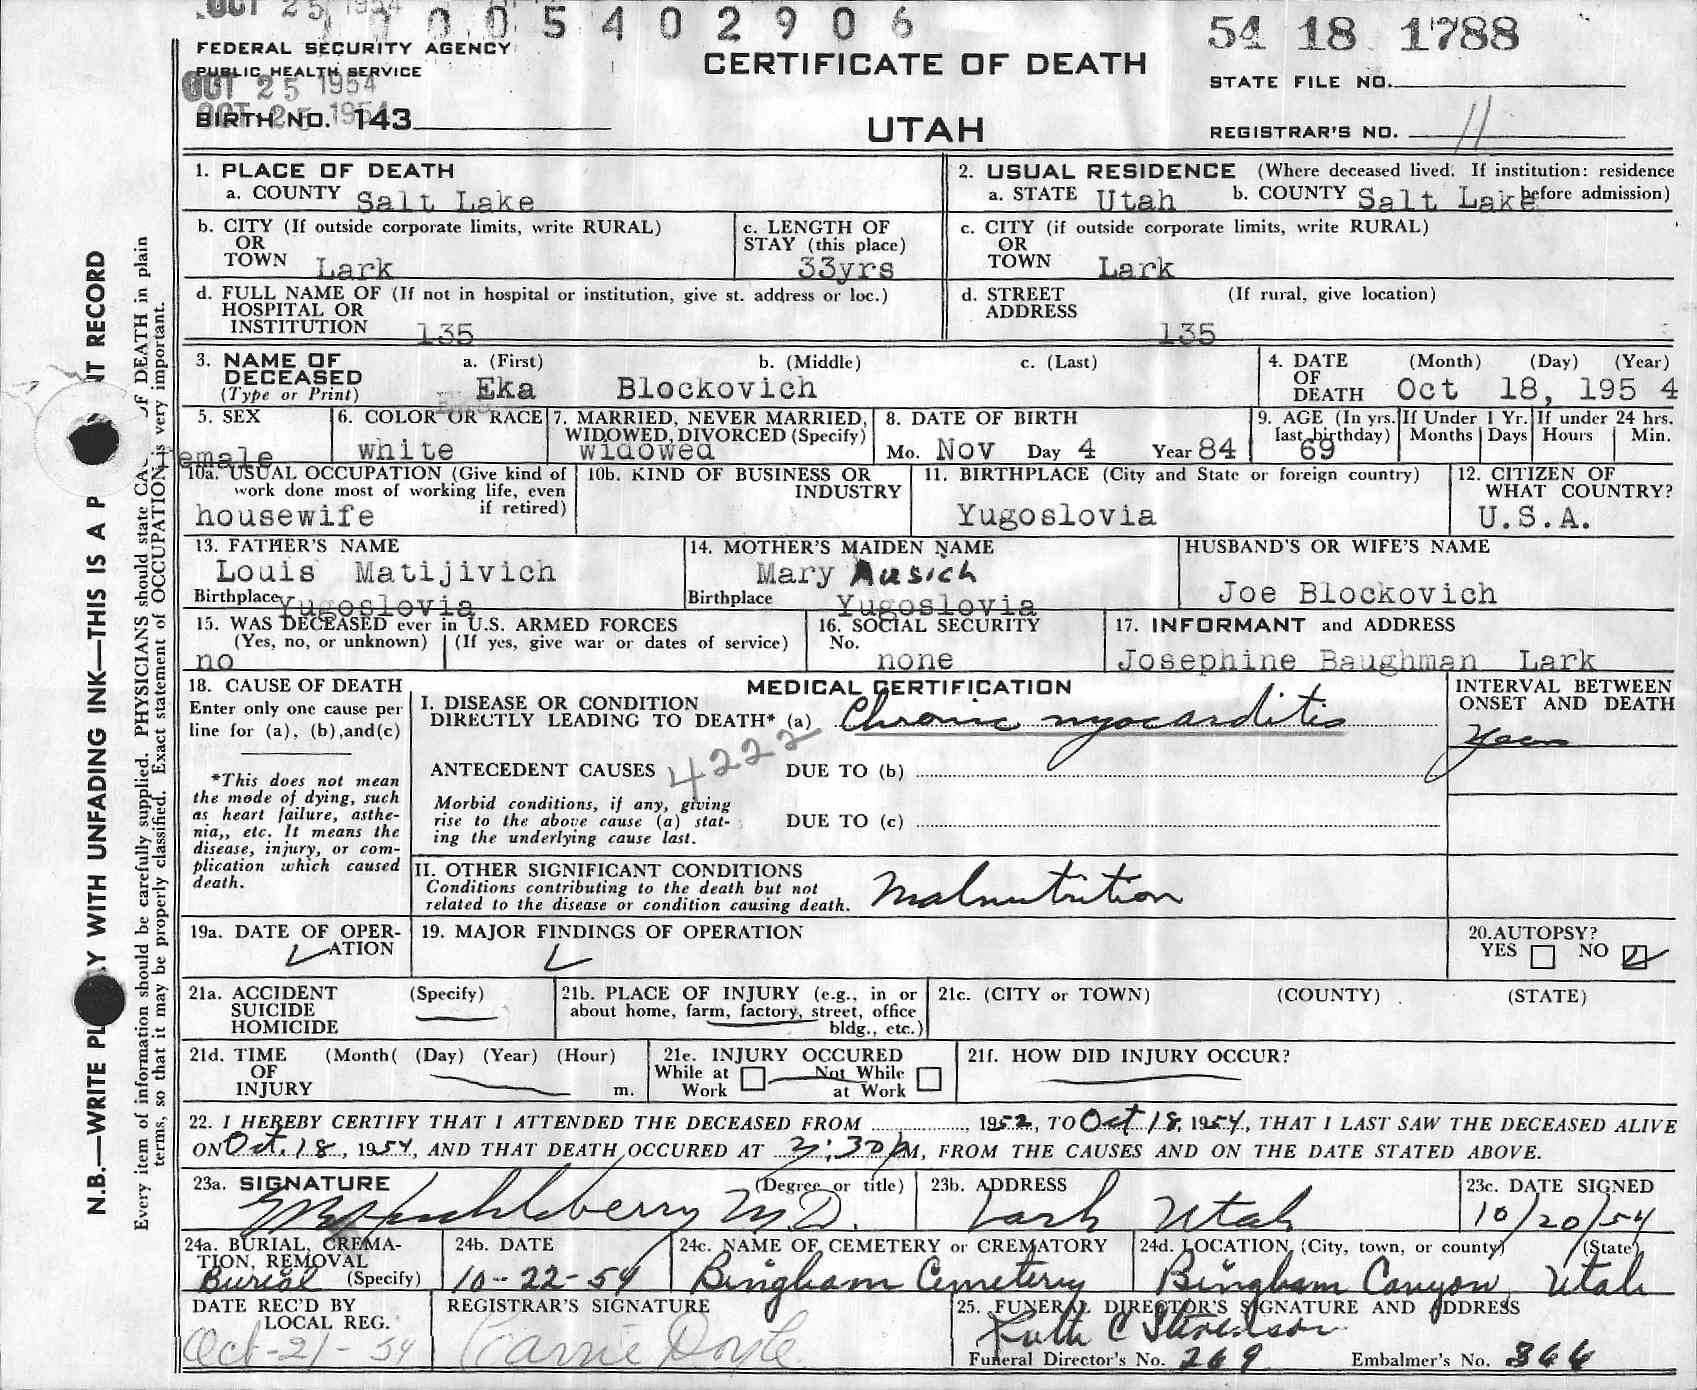 OCT 25 1954
0 0 5 4 0 2 9 0 6
54 18 1788
FEDERAL SECURITY AGENCY
PUBLIC HEALTH SERVICE
OCT 25 1954
OCT 25 1954
CERTIFICATE OF DEATH
STATE FILE NO.
BIRTH NO. 143
UTAH
REGISTRAR'S NO. 11
1. PLACE OF DEATH
a. COUNTY Salt Lake
2. USUAL RESIDENCE (Where deceased lived. If institution: residence before admission)
a. STATE Utah b. COUNTY Salt Lake
b. CITY (If outside corporate limits, write RURAL)
OR
TOWN Lark
c. LENGTH OF
STAY (this place)
33yrs
c. CITY (if outside corporate limits, write RURAL)
OR
TOWN Lark
d. FULL NAME OF (If not in hospital or institution, give st. address or loc.)
HOSPITAL OR
INSTITUTION 135
d. STREET (If rural, give location)
ADDRESS 135
3. NAME OF a. (First) b. (Middle) c. (Last)
DECEASED
(Type or Print) Eka Blockovich
4. DATE (Month) (Day) (Year)
OF
DEATH Oct 18, 195 4
5. SEX
emale
6. COLOR OR RACE
white
7. MARRIED, NEVER MARRIED,
WIDOWED, DIVORCED (Specify)
widowed
8. DATE OF BIRTH
Mo. Nov Day 4 Year 84
9. AGE (In yrs. last birthday) 69
If Under 1 Yr. Months Days
If under 24 hrs. Hours Min.
10a. USUAL OCCUPATION (Give kind of
work done most of working life, even
if retired)
housewife
10b. KIND OF BUSINESS OR
INDUSTRY
11. BIRTHPLACE (City and State or foreign country)
Yugoslovia
12. CITIZEN OF
WHAT COUNTRY?
U.S.A.
13. FATHER'S NAME
Louis Matijivich
Birthplace Yugoslovia
14. MOTHER'S MAIDEN NAME
Mary Ausich
Birthplace Yugoslovia
HUSBAND'S OR WIFE'S NAME
Joe Blockovich
15. WAS DECEASED ever in U.S. ARMED FORCES
(Yes, no, or unknown) (If yes, give war or dates of service)
no
16. SOCIAL SECURITY
No.
none
17. INFORMANT and ADDRESS
Josephine Baughman Lark
18. CAUSE OF DEATH
Enter only one cause per
line for (a), (b),and(c)
*This does not mean
the mode of dying, such
as heart failure, asthe-
nia,, etc. It means the
disease, injury, or com-
plication which caused
death.
MEDICAL CERTIFICATION
I. DISEASE OR CONDITION
DIRECTLY LEADING TO DEATH* (a) Chronic myocarditis
4222
ANTECEDENT CAUSES DUE TO (b)
Morbid conditions, if any, giving
rise to the above cause (a) stat-
ing the underlying cause last.
DUE TO (c)
INTERVAL BETWEEN
ONSET AND DEATH
Years
II. OTHER SIGNIFICANT CONDITIONS
Conditions contributing to the death but not
related to the disease or condition causing death.
Malnutrition
19a. DATE OF OPER-
ATION
19. MAJOR FINDINGS OF OPERATION
20.AUTOPSY?
YES NO
21a. ACCIDENT (Specify)
SUICIDE
HOMICIDE
21b. PLACE OF INJURY (e.g., in or
about home, farm, factory, street, office
bldg., etc.)
21c. (CITY or TOWN) (COUNTY) (STATE)
21d. TIME (Month( (Day) (Year) (Hour)
OF
INJURY m.
21e. INJURY OCCURED
While at Not While
Work at Work
21f. HOW DID INJURY OCCUR?
22. I HEREBY CERTIFY THAT I ATTENDED THE DECEASED FROM 1952, TO Oct 18, 1954, THAT I LAST SAW THE DECEASED ALIVE
ON Oct. 18, 1954, AND THAT DEATH OCCURED AT 2:30 PM, FROM THE CAUSES AND ON THE DATE STATED ABOVE.
23a. SIGNATURE (Degree or title)
Huckleberry M.D.
23b. ADDRESS
Lark Utah
23c. DATE SIGNED
10/20/54
24a. BURIAL, CREMA-
TION, REMOVAL
Burial (Specify)
24b. DATE
10-22-54
24c. NAME OF CEMETERY or CREMATORY
Bingham Cemetery
24d. LOCATION (City, town, or county) (State)
Bingham Canyon, Utah
DATE REC'D BY
LOCAL REG.
Oct-21-54
REGISTRAR'S SIGNATURE
Carrie Doyle
25. FUNERAL DIRECTOR'S SIGNATURE AND ADDRESS
Ruth C Stevenson
Funeral Director's No. 269 Embalmer's No. 366
N.B.—WRITE PL Y WITH UNFADING INK—THIS IS A P NT RECORD
Every item of information should be carefully supplied. PHYSICIANS should state CA OF DEATH in plain
terms, so that it may be properly classified. Exact statement of OCCUPATION is very important.